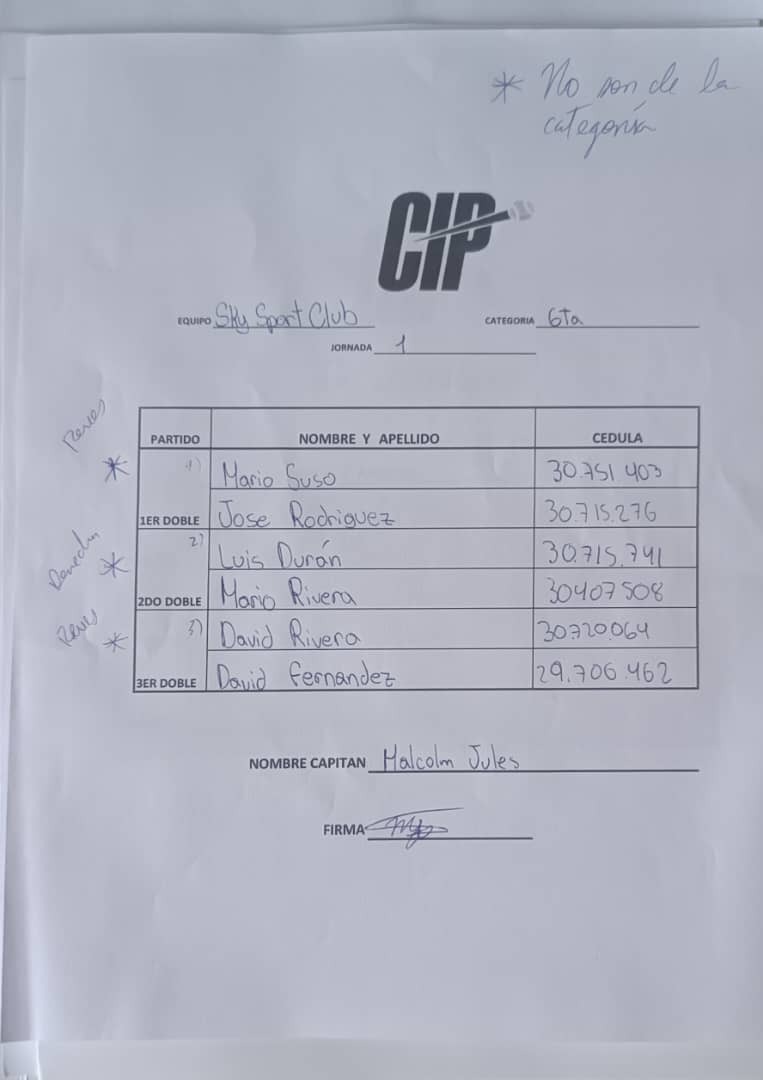 * No son de la
categoría
CIP
EQUIPO Sky Sport Club CATEGORIA 6Ta
JORNADA 1
PARTIDO NOMBRE Y APELLIDO CEDULA
Reves * 1) Mario Suso 30.751.403
1ER DOBLE Jose Rodriguez 30.715.276
Derecha * 2) Luis Durán 30.715.741
2DO DOBLE Mario Rivera 30407508
Reves * 3) David Rivera 30720064
3ER DOBLE David Fernandez 29.706.462
NOMBRE CAPITAN Malcolm Jules
FIRMA